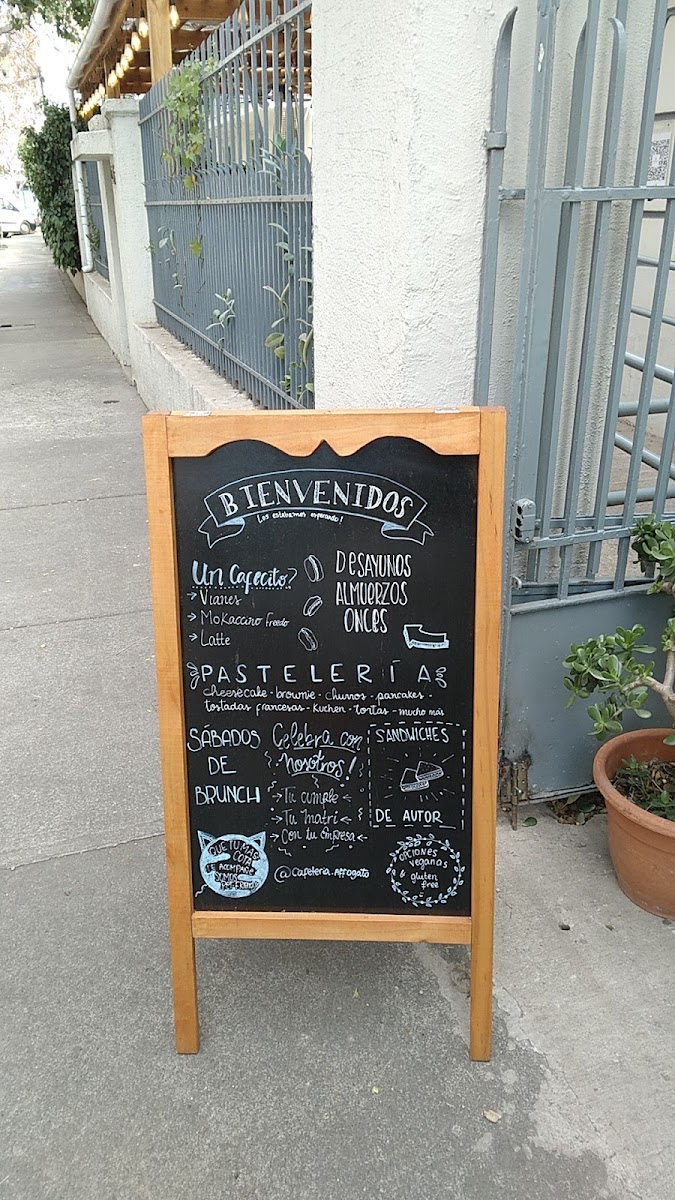 BIENVENIDOS
Los estabamos esperando!
Un Cafecito?
→ Vianes
→ Mokaccino Freedo
→ Latte
DESAYUNOS
ALMUERZOS
ONCES
PASTELERÍA
cheesecake - brownie - churros - pancakes -
tostadas francesas - kuchen - tortas - mucho más
SÁBADOS
DE
BRUNCH
Celebra con
nosotros!
→ Tu cumple
→ Tu matri
→ Con tu Empresa
SANDWICHES
DE AUTOR
QUE TU MAS
COTA
TE ACOMPAÑE
SOMOS
@cafeteria.affogato
OPCIONES
veganas
& gluten
free